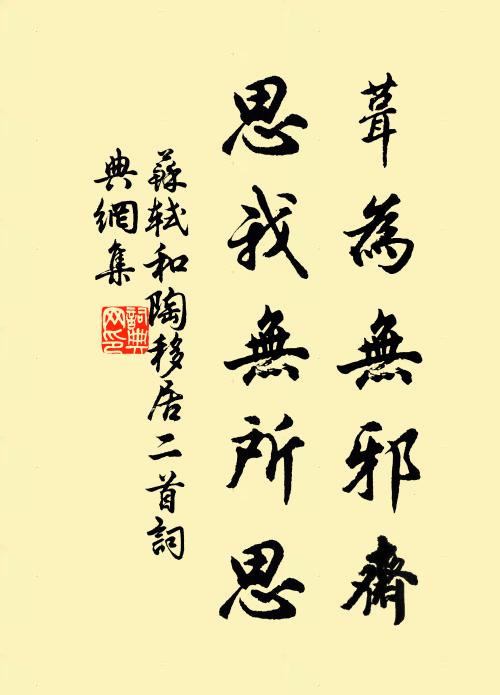 葺為無邪齋
思我無所思
蘇軾和陶移居二首詞
典網集
詞典
网印